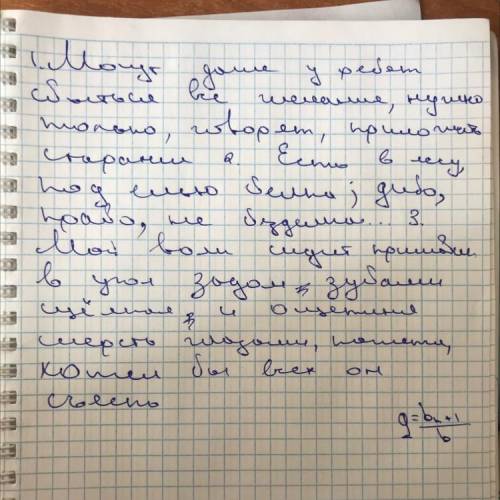 1. Могут даже у ребят
сбыться все желания, нужно
только, говорят, приложить
старания 2. Есть в лесу,
под елью белка; диво,
право, не безделка... 3.
Мой волк сидит прижавшись
в угол задом, зубами
щёлкая и ощетиня
шерсть глазами, кажется,
хотел бы всех он
съесть
q = bn+1 / b